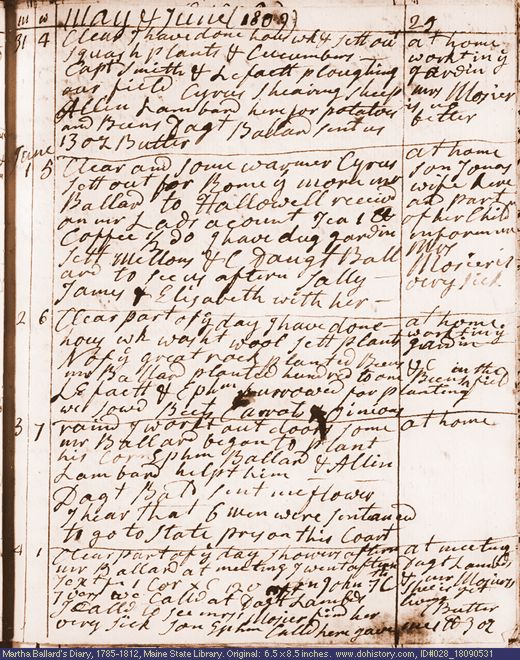 m w May & June (1809) 29
31 4 Clear I have done hous wk & sett out
Squash Plants & Cucumbers
Capt Smith & Lefaett ploughing
our field Cyrus Shearing Sheep
Allin Lambard here for potatoes
and Beens Dagt Ballard sent us
13 oz Butter
at home
working
gardin
mrs Mosier
is
better
June
1 5 Clear and some warmer Cyrus
sett out for Rome y morn mr
Ballard to Hallowell receivd
on mr Lads acount Tea 1
Coffee I have dug gardin
sett Mellons & C Daugt Ball
ard to see us aftern Sally
James & Elisabeth with her
at home
son Jonas
wife here
and part
of her Child
inform
Mrs
Mosier is
very sick
2 6 Clear part of y day I have done
hous wk washt wool sett Plants
N of y great rock Planted Beens
mr Ballard planted hundred to one
Lefaett & Ephm burrowed for planting
we sowd Beets Carrots & Onions
at home
working
gardin
& in the
field
3 7 raind I workt out doors some
mr Ballard began to Plant
his Corn Ephm Ballard & Allin
Lambard helpt him
Dagt Bald sent me flower
I hear that 6 men were sentanced
to go to State prison this Court
at home
4 1 Clear part of y day showers aftern
mr Ballard at meeting I went aftern
Text 1 Cor John
we Calld at Dagt Lambds
I Calld to see mrs Mosier find her
very sick Son Ephm Calld here gave me
at meeting
Dagt Lambd
& mrs Mosiers
shee is yet
living
Butter
3 oz
Martha Ballard's Diary, 1785-1812, Maine State Library. Original: 6.5 x 8.5 inches. www.dohistory.org, ID#028_18090531